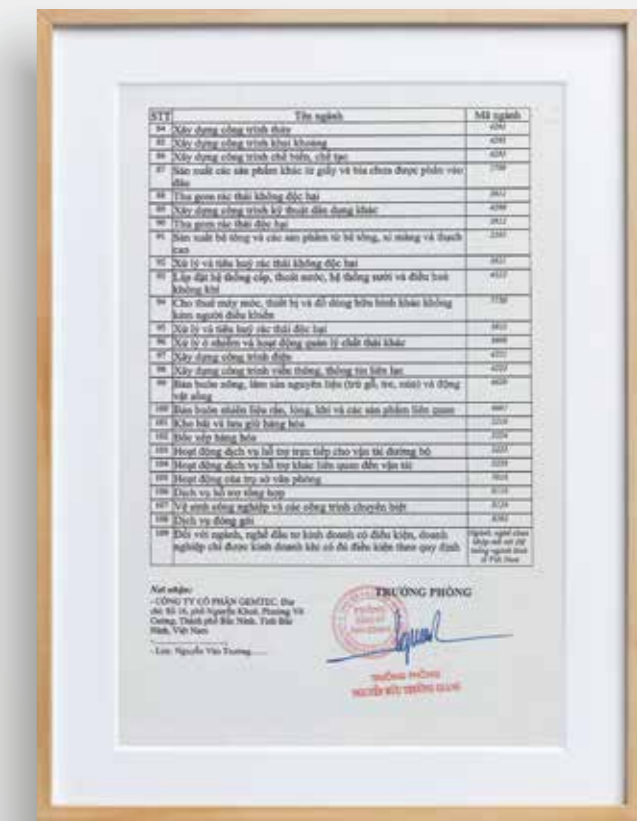 STT Tên ngành Mã ngành
84 Xây dựng công trình thủy 4291
85 Xây dựng công trình khai khoáng 4292
86 Xây dựng công trình chế biến, chế tạo 4293
87 Sản xuất các sản phẩm khác từ giấy và bìa chưa được phân vào 1709
đâu
88 Thu gom rác thải không độc hại 3811
89 Xây dựng công trình kỹ thuật dân dụng khác 4299
90 Thu gom rác thải độc hại 3812
91 Sản xuất bê tông và các sản phẩm từ bê tông, xi măng và thạch 2395
cao
92 Xử lý và tiêu huỷ rác thải không độc hại 3821
93 Lắp đặt hệ thống cấp, thoát nước, hệ thống sưởi và điều hoà 4322
không khí
94 Cho thuê máy móc, thiết bị và đồ dùng hữu hình khác không 7730
kèm người điều khiển
95 Xử lý và tiêu huỷ rác thải độc hại 3822
96 Xử lý ô nhiễm và hoạt động quản lý chất thải khác 3900
97 Xây dựng công trình điện 4221
98 Xây dựng công trình viễn thông, thông tin liên lạc 4223
99 Bán buôn nông, lâm sản nguyên liệu (trừ gỗ, tre, nứa) và động 4620
vật sống
100 Bán buôn nhiên liệu rắn, lỏng, khí và các sản phẩm liên quan 4661
101 Kho bãi và lưu giữ hàng hóa 5210
102 Bốc xếp hàng hóa 5224
103 Hoạt động dịch vụ hỗ trợ trực tiếp cho vận tải đường bộ 5225
104 Hoạt động dịch vụ hỗ trợ khác liên quan đến vận tải 5229
105 Hoạt động của trụ sở văn phòng 7010
106 Dịch vụ hỗ trợ tổng hợp 8110
107 Vệ sinh công nghiệp và các công trình chuyên biệt 8129
108 Dịch vụ đóng gói 8292
109 Đối với ngành, nghề đầu tư kinh doanh có điều kiện, doanh
nghiệp chỉ được kinh doanh khi có đủ điều kiện theo quy định
Ngành, nghề chưa
khớp mã với Hệ
thống ngành kinh
tế Việt Nam
Nơi nhận:
- CÔNG TY CỔ PHẦN GEMTEC. Địa
chỉ: Số 16, phố Nguyễn Khuê, Phường Vũ
Cường, Thành phố Bắc Ninh, Tỉnh Bắc
Ninh, Việt Nam
- Lưu: Nguyễn Văn Trường......
TRƯỞNG PHÒNG
PHÒNG
ĐĂNG KÝ
KINH DOANH
TRƯỞNG PHÒNG